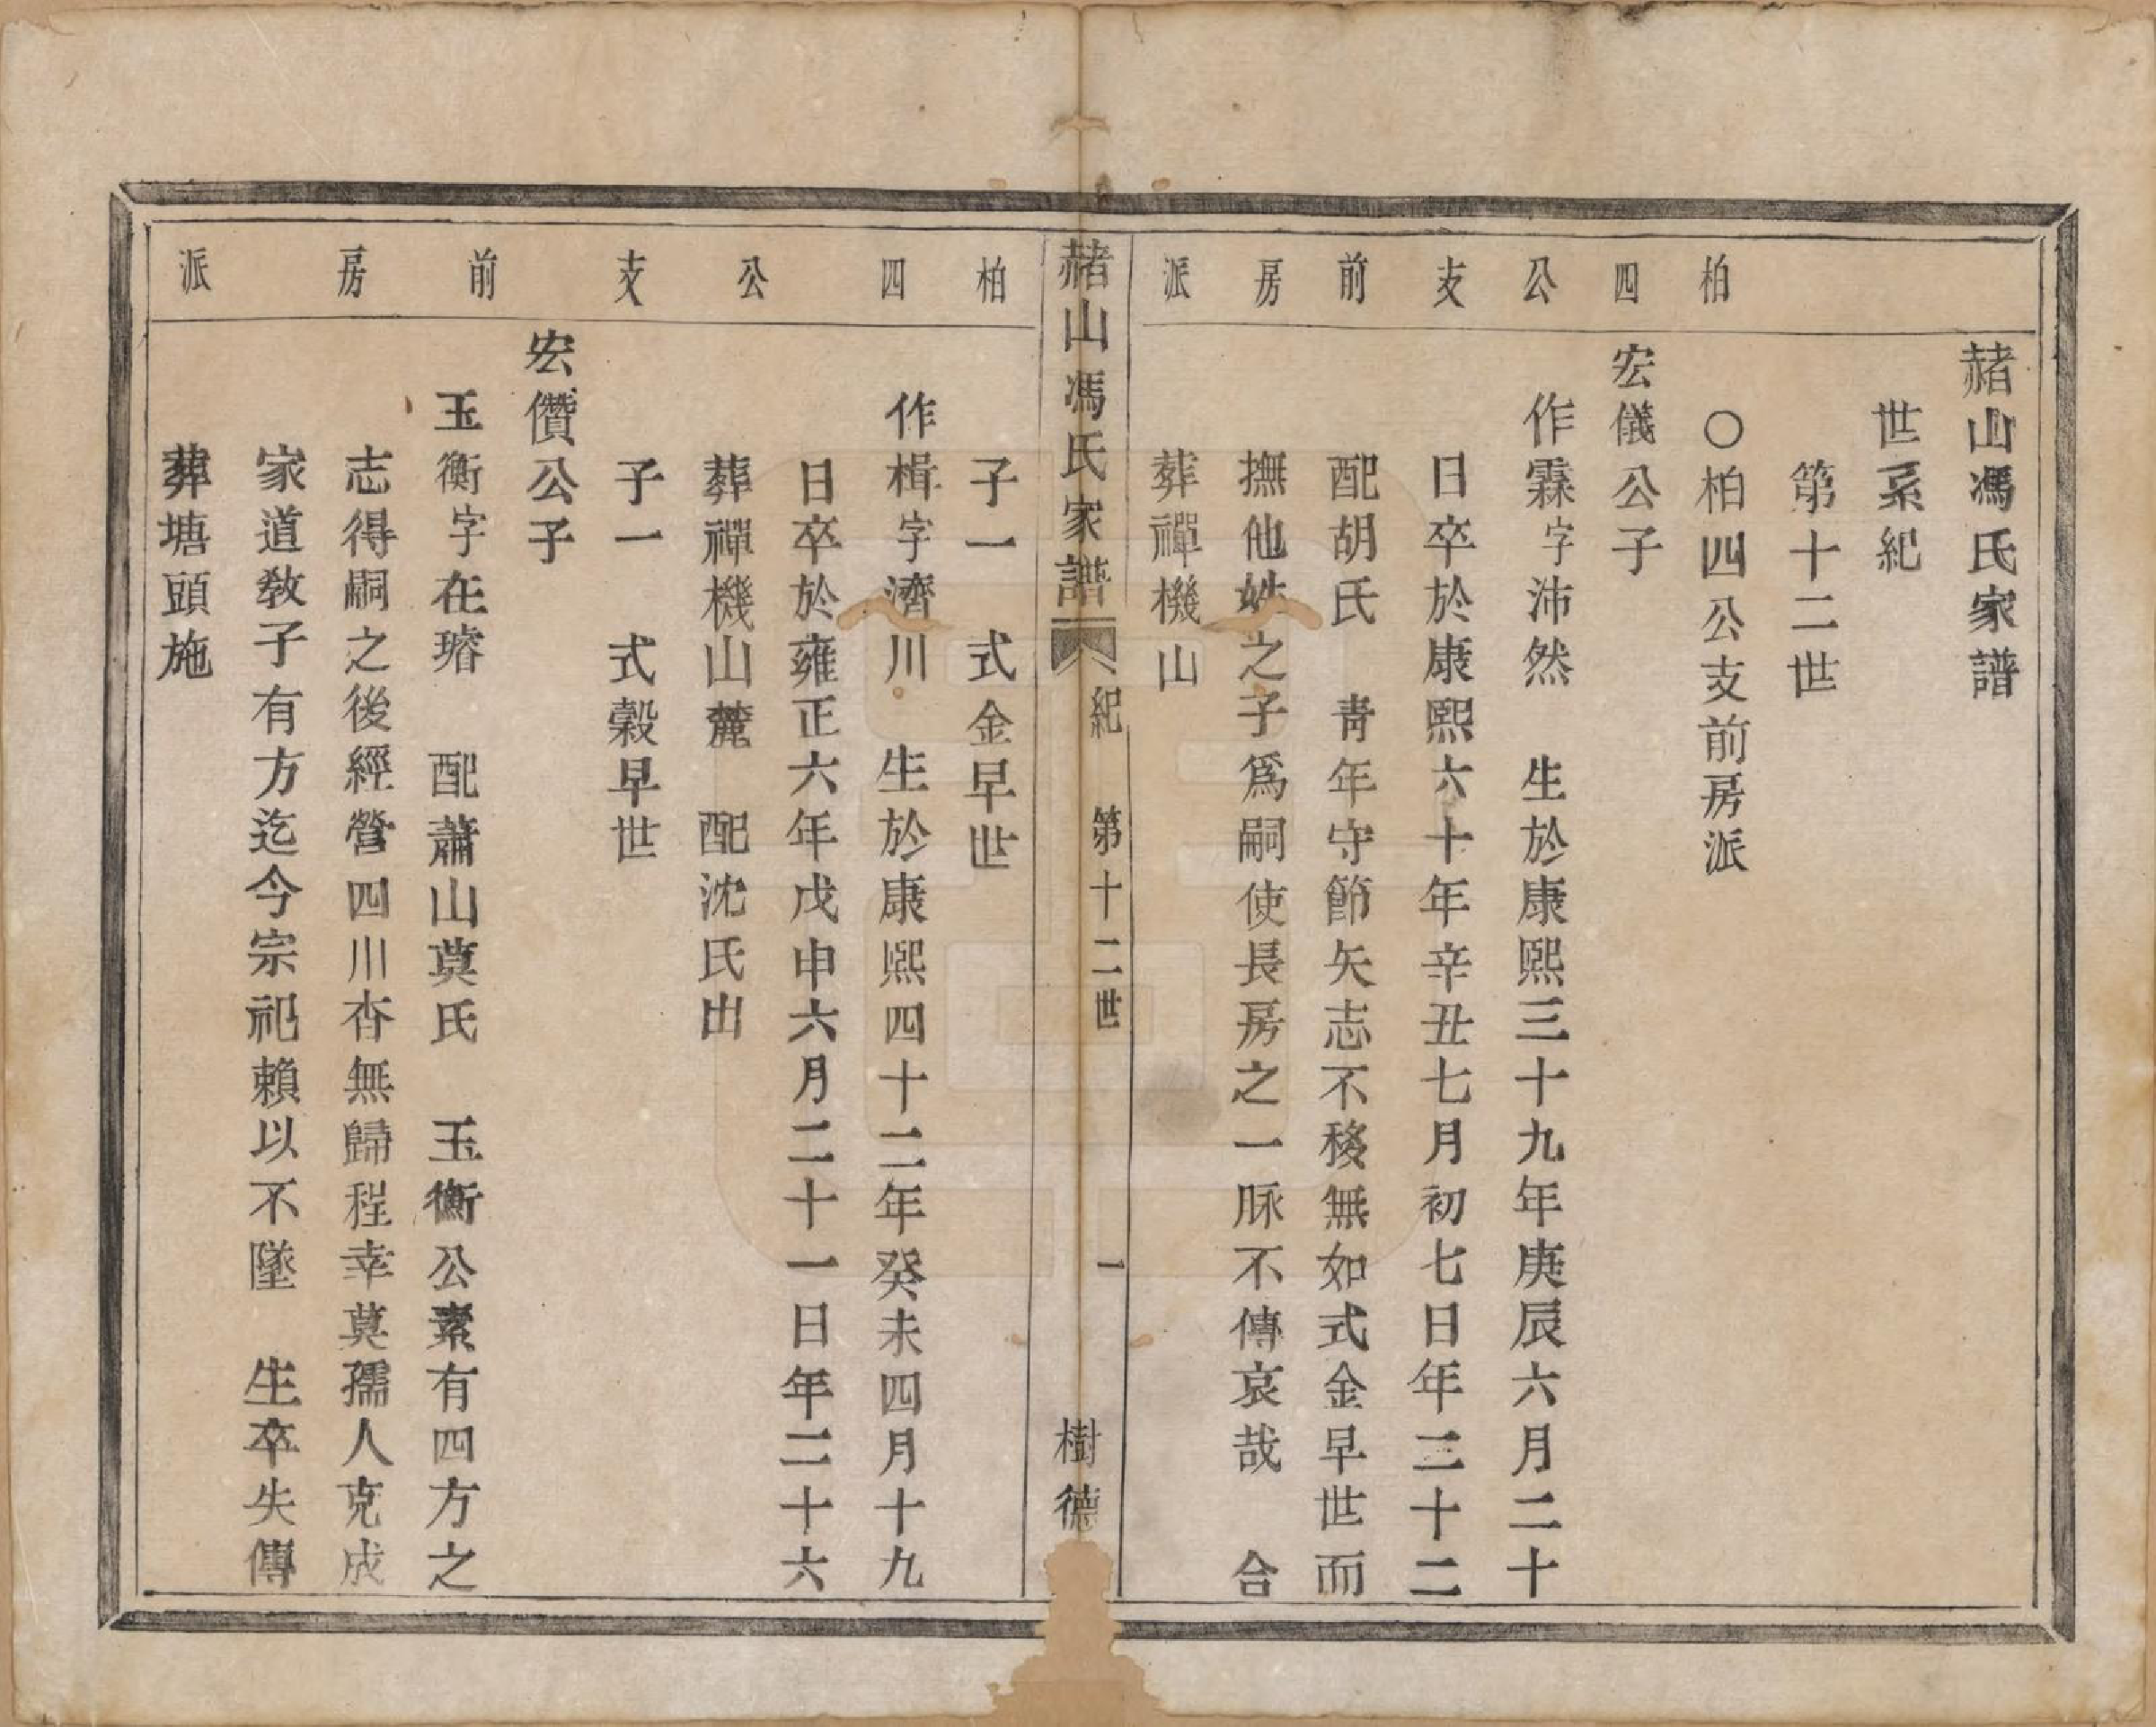 柏四公支前房派
赭山馮氏家譜
世系紀
第十二世
○柏四公支前房派
宏儀公子
作霖字沛然　生於康熙三十九年庚辰六月二十
日卒於康熙六十年辛丑七月初七日年三十二
配胡氏　青年守節矢志不移無如式金早世而
撫他姓之子爲嗣使長房之一脉不傳哀哉　合
葬禪機山
赭山馮氏家譜　紀　第十二世　一　樹德
柏四公支前房派
子一　式金早世
作楫字濟川　生於康熙四十二年癸未四月十九
日卒於雍正六年戊申六月二十一日年二十六
葬禪機山麓　配沈氏出
子一　式穀早世
宏儧公子
玉衡字在璿　配蕭山莫氏　玉衡公素有四方之
志得嗣之後經營四川杳無歸程幸莫孺人克成
家道教子有方迄今宗祀賴以不墜　生卒失傳
葬塘頭施